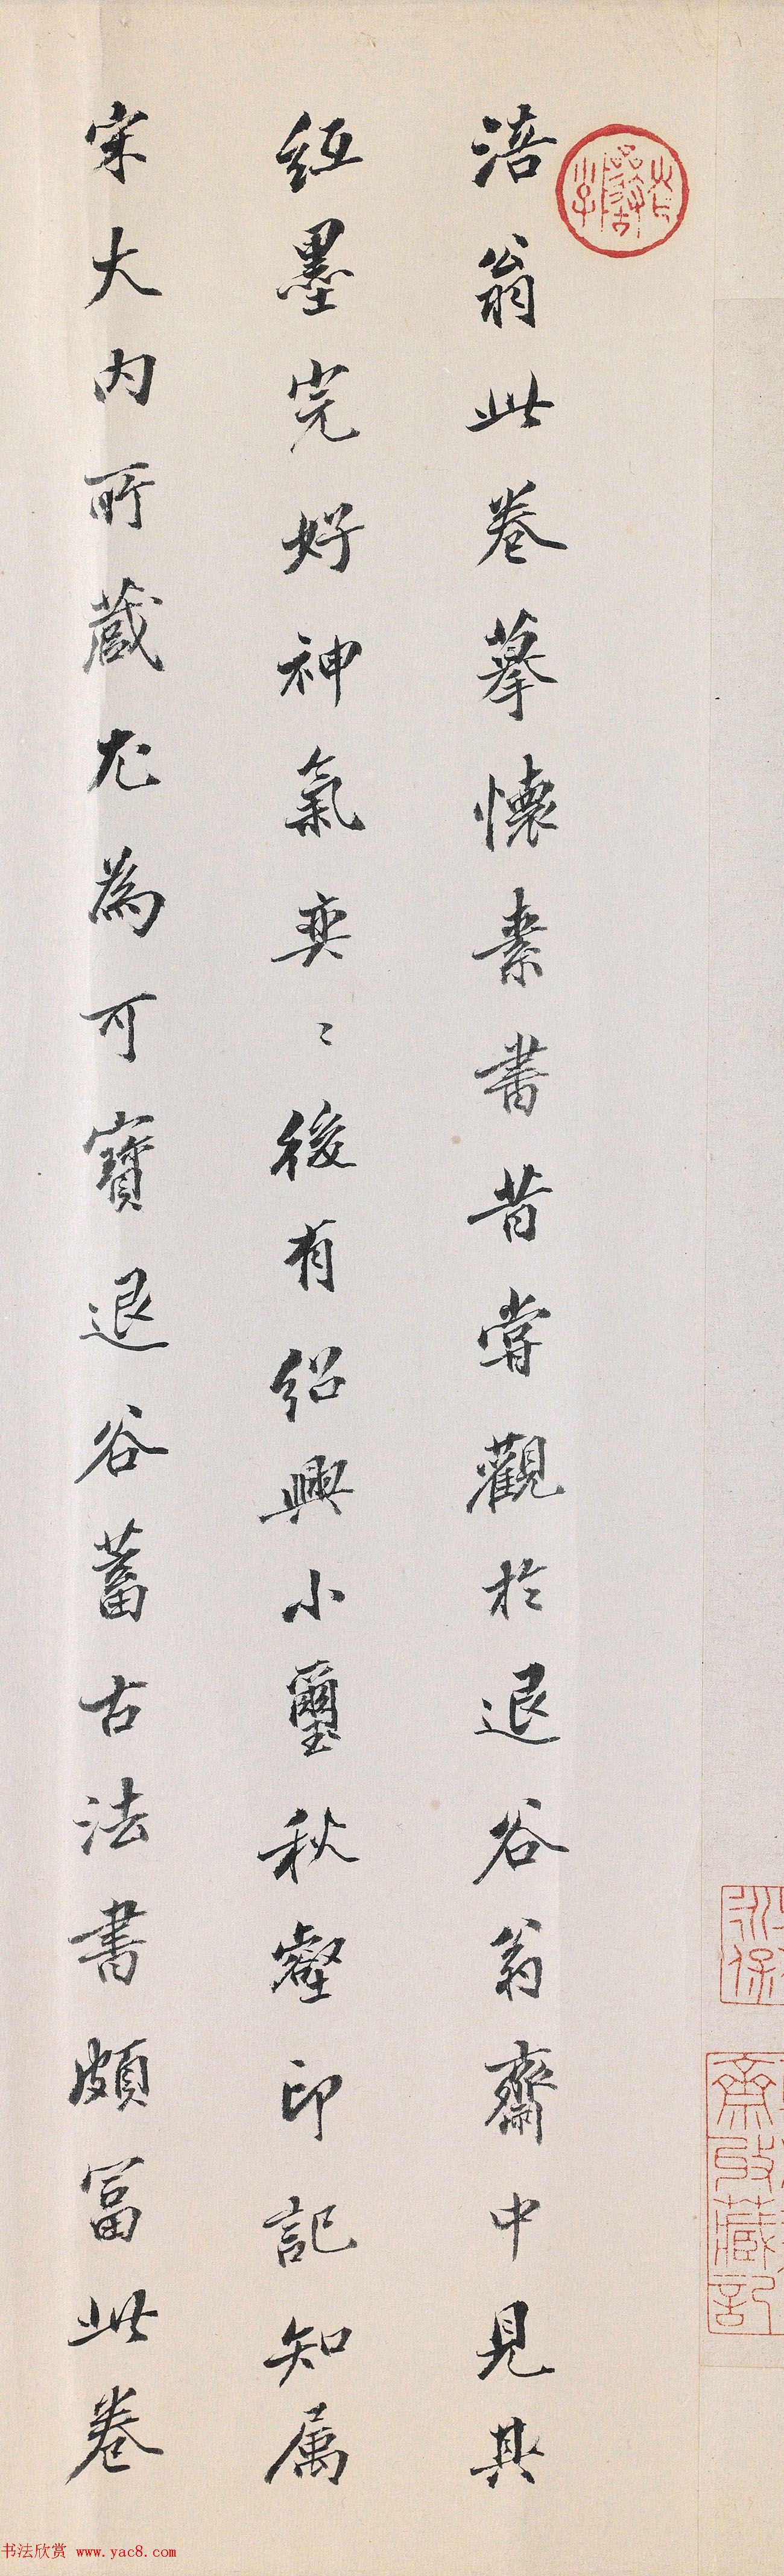 涪翁此卷摹懷素書昔嘗觀於退谷翁齋中見其
紙墨完好神氣奕〻後有紹興小璽秋壑印記知属
宋大内所藏尤為可寶退谷蓄古法書頗富此卷
齋收藏記
书法欣赏 www.yac8.com